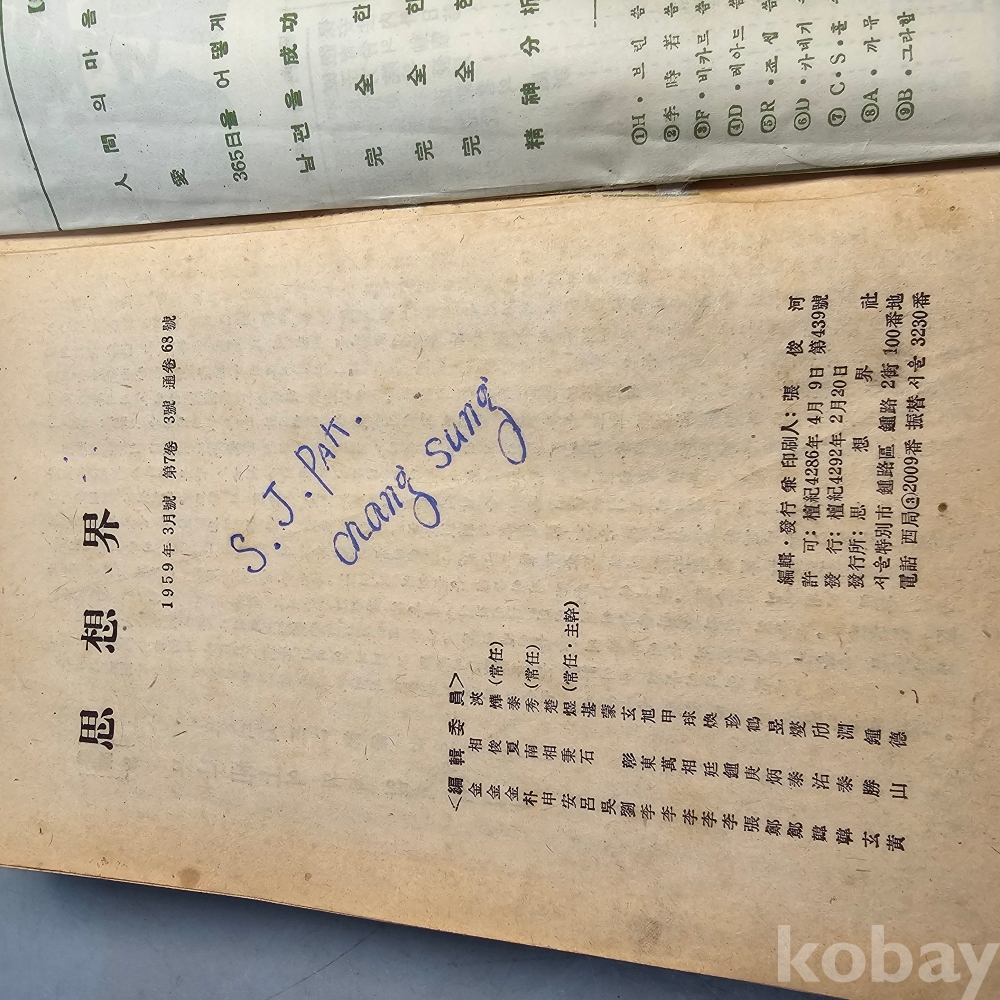 人間의 마음
愛
365日을 어떻게
남편을 成功
完全한
完全한
完全한
精神分析
①H·브린
②李時若
③F·바카드
④D·데아드
⑤R·죠셉
⑥D·카네기
⑦C·S·홀
⑧A·까뮤
⑨B·그라함
思想界
1959年 3月號 第7卷 3號 通卷 68號
S. J. PAK.
Chang Sung
<編輯委員>
金相浹
金俊燁 (常任)
金夏泰
朴南秀 (常任)
申相楚
安秉煜 (常任·主幹)
呂石基
吳蒙
劉彰玄
李東旭
李萬甲
李相球
李廷煥
李鍾珍
張庚鶴
鄭炳昱
鄭泰燮
韓治㔕
韓泰淵
玄勝鍾
黃山德
編輯·發行 兼 印刷人: 張俊河
許可: 檀紀4286年 4月 9日 第439號
發行: 檀紀4292年 2月20日
發行所: 思想界社
서울特別市 鍾路區 鍾路 2街 100番地
電話 西局③2009番 振替 서울 3230番
kobay